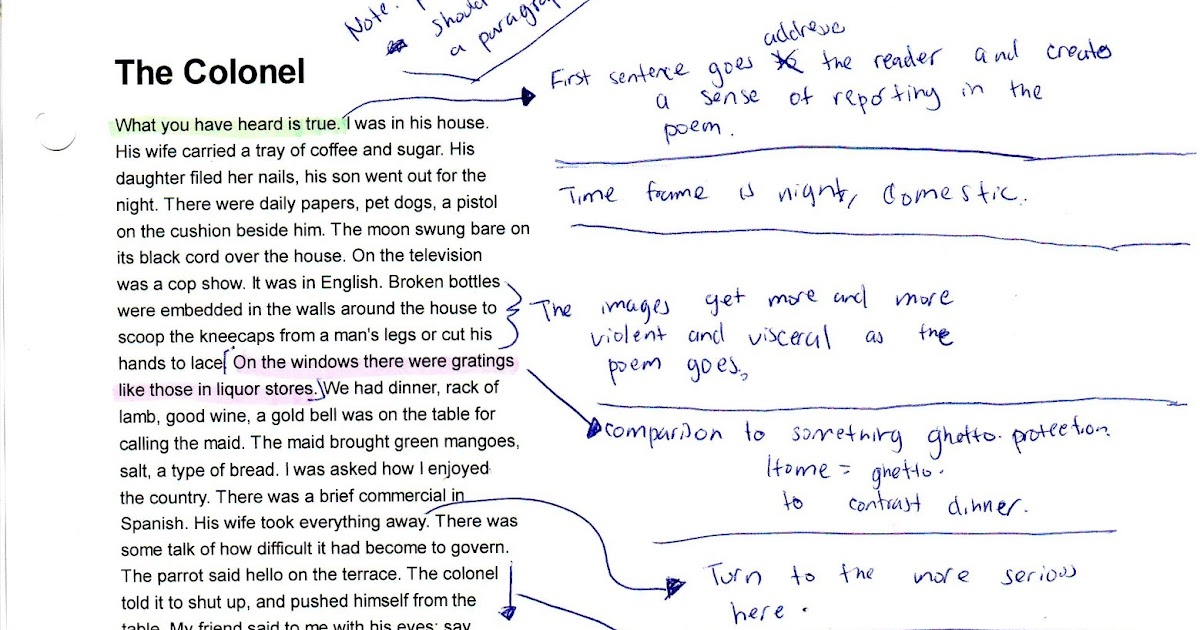 Note:
should
a paragra
The Colonel
What you have heard is true. I was in his house.
His wife carried a tray of coffee and sugar. His
daughter filed her nails, his son went out for the
night. There were daily papers, pet dogs, a pistol
on the cushion beside him. The moon swung bare on
its black cord over the house. On the television
was a cop show. It was in English. Broken bottles
were embedded in the walls around the house to
scoop the kneecaps from a man's legs or cut his
hands to lace. On the windows there were gratings
like those in liquor stores. We had dinner, rack of
lamb, good wine, a gold bell was on the table for
calling the maid. The maid brought green mangoes,
salt, a type of bread. I was asked how I enjoyed
the country. There was a brief commercial in
Spanish. His wife took everything away. There was
some talk of how difficult it had become to govern.
The parrot said hello on the terrace. The colonel
told it to shut up, and pushed himself from the
table. My friend said to me with his eyes: say
address
First sentence goes the reader and creates
a sense of reporting in the
poem.
Time frame is night, domestic.
The images get more and more
violent and visceral as the
poem goes,
comparison to something ghetto. protection.
Home = ghetto.
to contrast dinner.
Turn to the more serious
here.